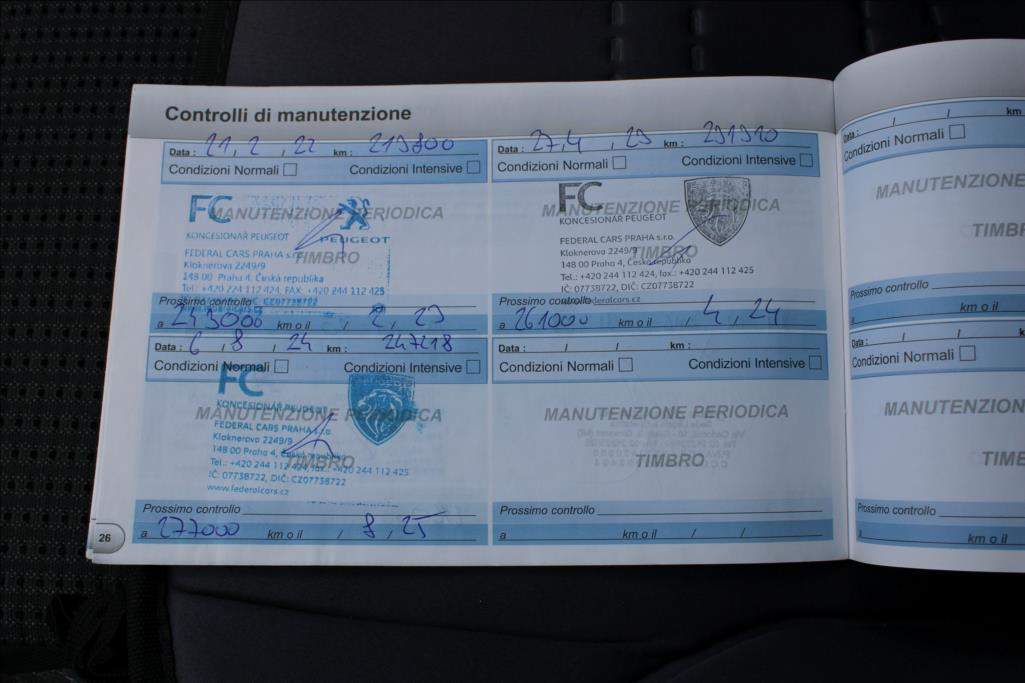 Controlli di manutenzione
Data : 21 , 2 , 22 km : 219800
Condizioni Normali Condizioni Intensive
FC
MANUTENZIONE PERIODICA
KONCESIONÁŘ PEUGEOT PEUGEOT
FEDERAL CARS PRAHA s.r.o.
TIMBRO
Kloknerova 2249/9
148 00 Praha 4, Česká republika
Tel.: +420 244 112 424, FAX: +420 244 112 425
CZ07738722
Prossimo controllo
a 243000 km o il / 2 , 23
Data : 27 , 4 , 23 km : 231910
Condizioni Normali Condizioni Intensive
FC
MANUTENZIONE PERIODICA
KONCESIONÁŘ PEUGEOT
FEDERAL CARS PRAHA s.r.o.
TIMBRO
Kloknerova 2249/9
148 00 Praha 4, Česká republika
Tel.: +420 244 112 424, fax.: +420 244 112 425
IČ: 07738722, DIČ: CZ07738722
www.federalcars.cz
Prossimo controllo
a 261000 km o il / 4 , 24
Data : 6 / 8 , 24 km : 247218
Condizioni Normali Condizioni Intensive
FC
KONCESIONÁŘ PEUGEOT
MANUTENZIONE PERIODICA
FEDERAL CARS PRAHA s.r.o.
Kloknerova 2249/9
148 00 Praha 4, Česká republika
TIMBRO
Tel.: +420 244 112 424, fax.: +420 244 112 425
IČ: 07738722, DIČ: CZ07738722
www.federalcars.cz
Prossimo controllo
a 277000 km o il / 8 , 25
Data : / / km :
Condizioni Normali Condizioni Intensive
MANUTENZIONE PERIODICA
TIMBRO
Prossimo controllo
a km o il / /
26
Data : / / km
Condizioni Normali
MANUTENZIONE
TIMBRO
Prossimo controllo
a km o il
Data : / /
Condizioni Normali
MANUTENZION
TIMB
Prossimo controllo
a km o il